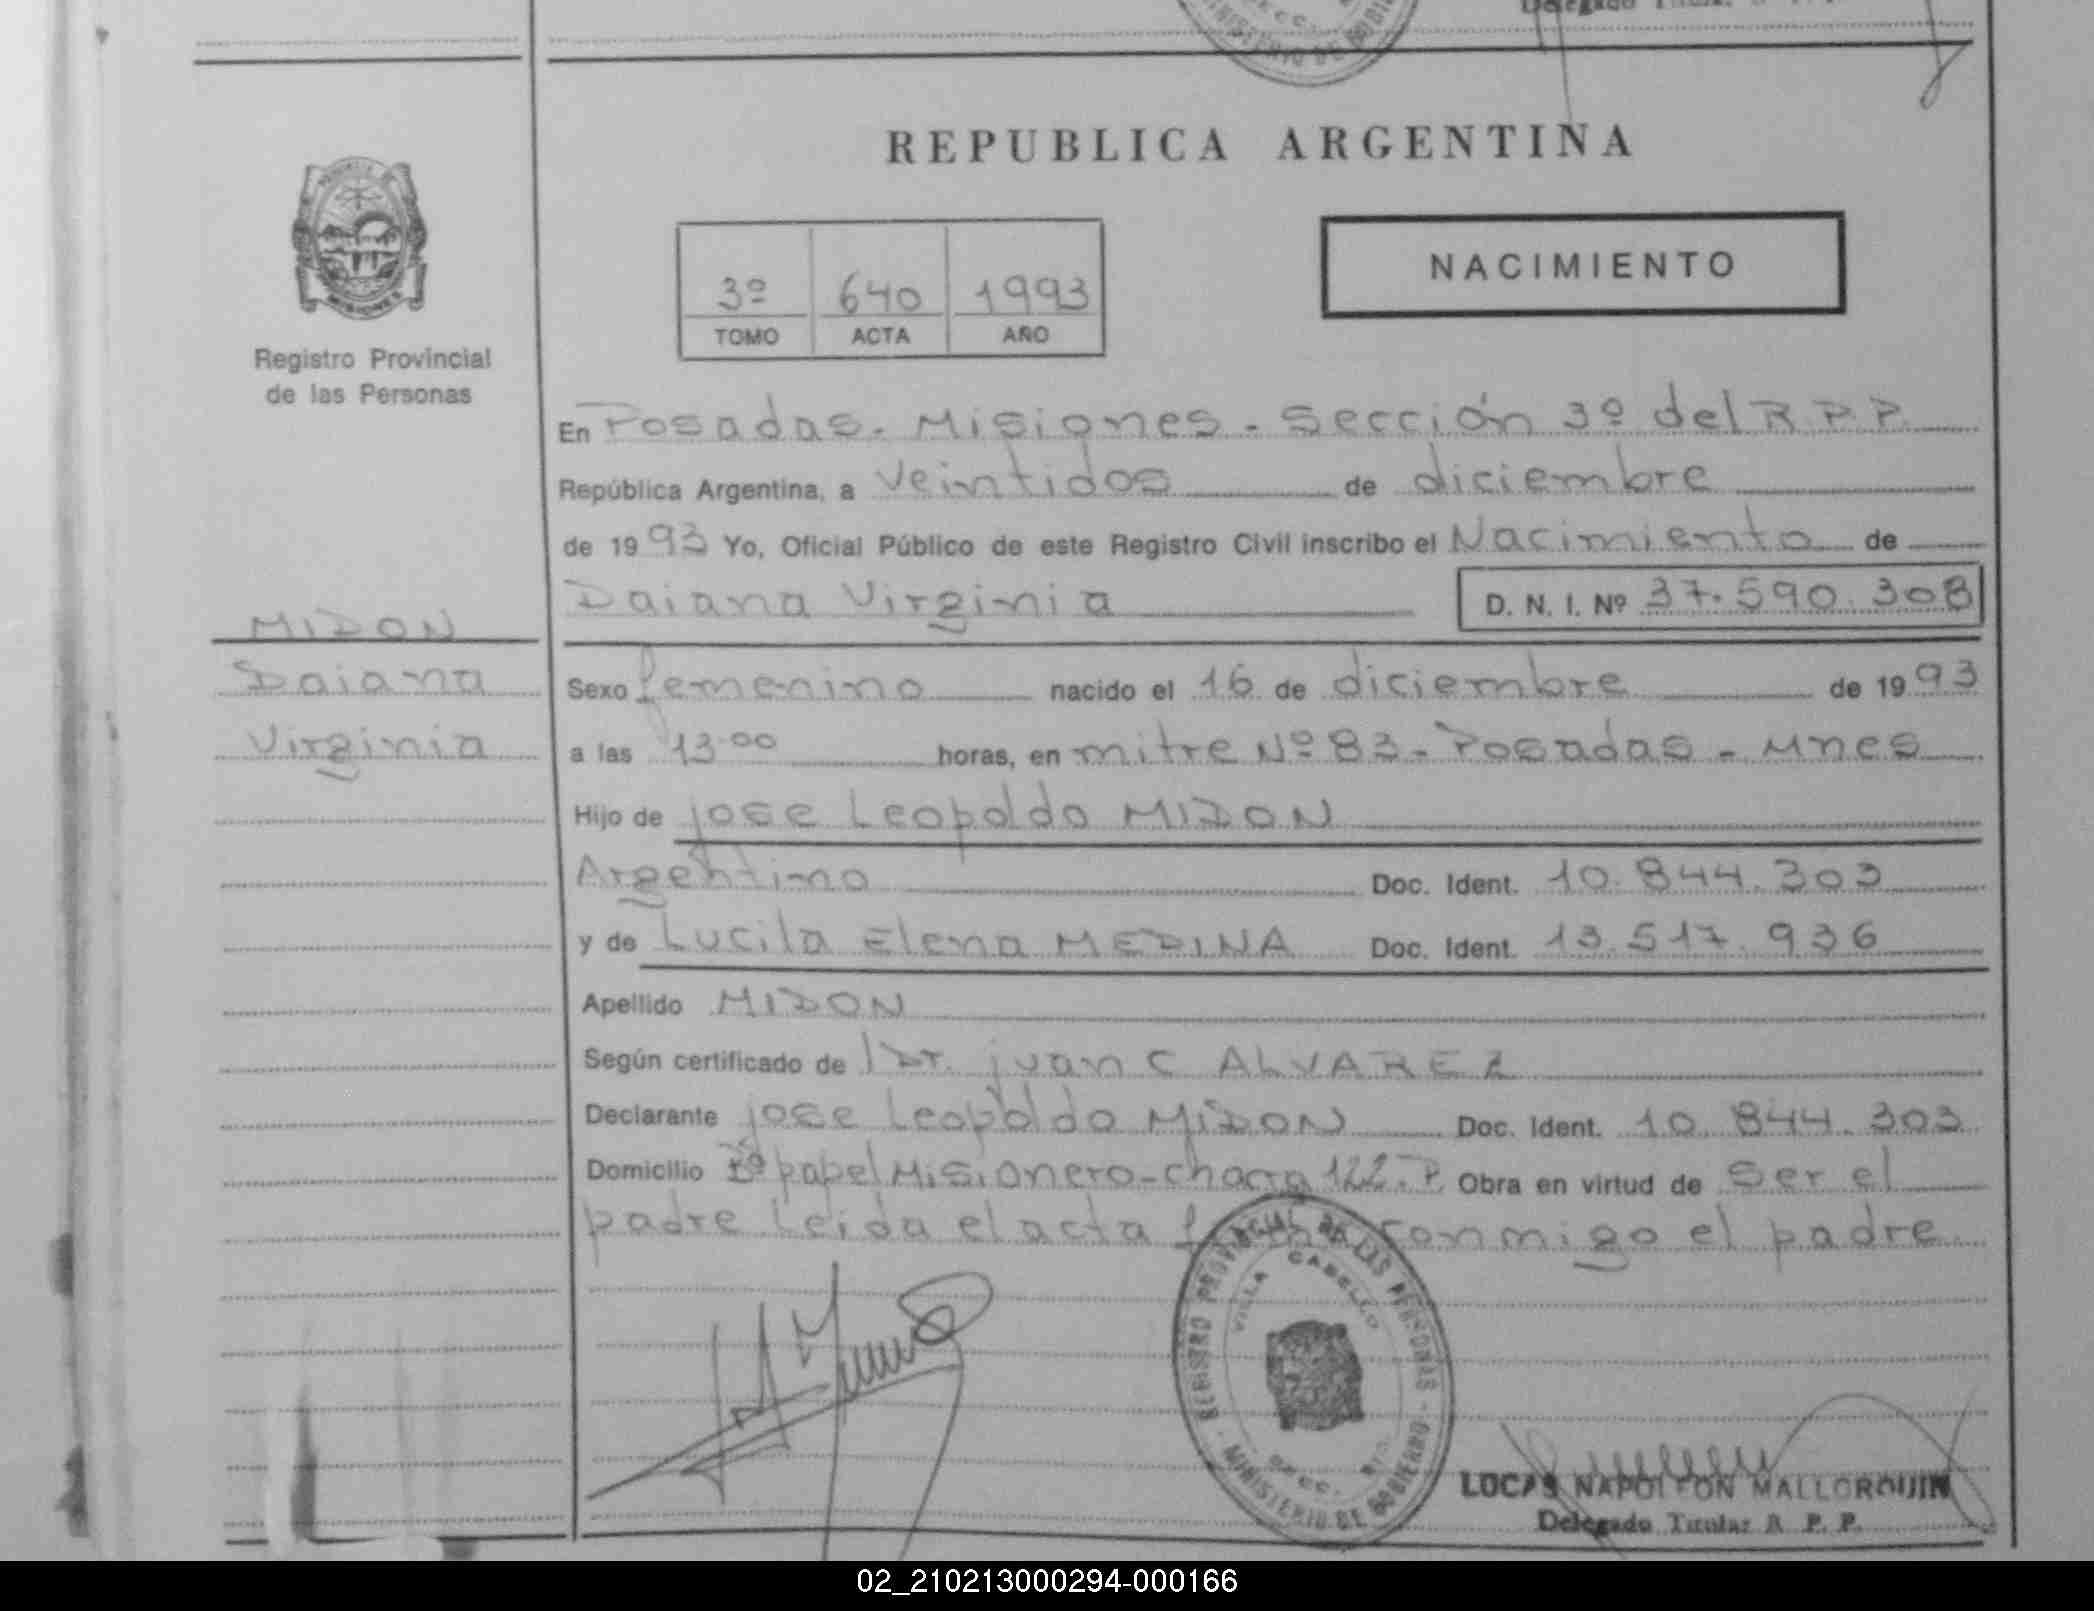 REPUBLICA ARGENTINA
NACIMIENTO
3º 640 1993
TOMO ACTA AÑO
MISIONES
Registro Provincial
de las Personas
En Posadas. Misiones - Sección 3º del R.P.P.
República Argentina, a veintidos de diciembre
de 1993 Yo, Oficial Público de este Registro Civil inscribo el Nacimiento de
Daiana Virginia D. N. I. Nº 37.590.308
MIDON
Daiana
Virginia
Sexo femenino nacido el 16 de diciembre de 1993
a las 13.00 horas, en mitre Nº 83 - Posadas - Mnes
Hijo de jose Leopoldo MIDON
Argentino Doc. Ident. 10.844.303
y de Lucila Elena MEDINA Doc. Ident. 13.517.936
Apellido MIDON
Según certificado de l Dr. juan C ALVAREZ
Declarante jose Leopoldo MIDON Doc. Ident. 10.844.303
Domicilio Bº papel Misionero - chacra 122. P. Obra en virtud de ser el
padre Leida el acta conmigo el padre
REGISTRO PROVINCIAL DE LAS PERSONAS - MINISTERIO DE GOBIERNO -
VILLA CABELLO
LUCAS NAPOLEON MALLORQUIN
Delegado Titular R. P. P.
02_210213000294-000166